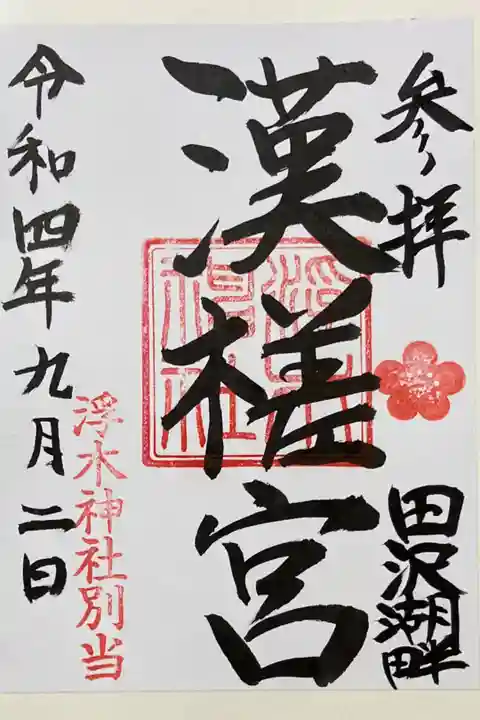 参拝
田沢湖畔
漢槎宮
浮木神社別当
令和四年九月二日